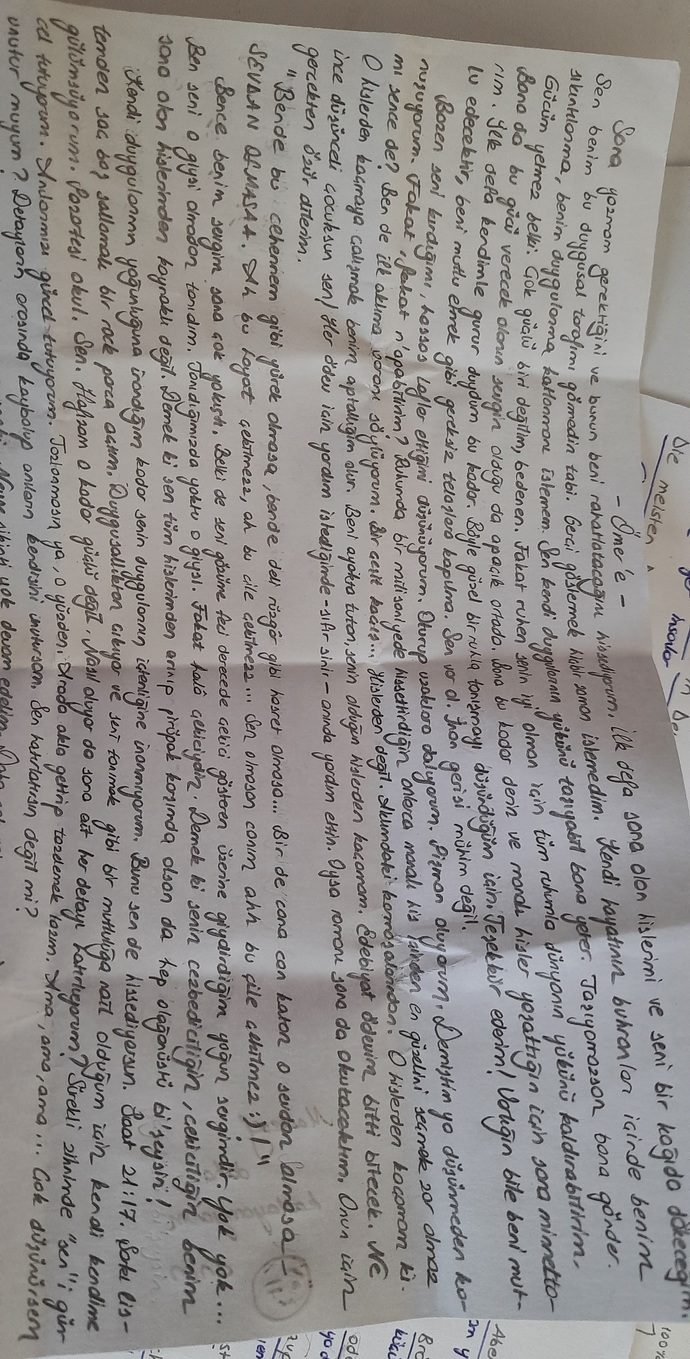 - Ömer'e -
Sana yazmam gerektiğini ve bunun beni rahatlatacağını hissediyorum, ilk defa sana olan hislerimi ve seni bir kağıda dökeceğim.
Sen benim bu duygusal tarafımı görmedin tabi. Gerçi göstermek hiçbir zaman istemedim. Kendi hayatının buhranları içinde benim
sıkıntılarıma, benim duygularıma katlanmanı istemem. Sen kendi duygularının yükünü taşıyabil bana yeter. Taşıyamazsan bana gönder.
Gücüm yetmez belki. Çok güçlü biri değilim, bedenen. Fakat ruhen senin iyi olman için tüm ruhumla dünyanın yükünü kaldırabilirim.
Bana da bu gücü verecek olanın sevgin olduğu da apaçık ortada. Bana bu kadar derin ve manalı hisler yaşattığın için sana minnetta-
rım. İlk defa kendimle gurur duydum bu kadar. Böyle güzel bir ruhla tanışmayı düşündüğüm için. Teşekkür ederim! Varlığın bile beni mut-
lu edecektir, beni mutlu etmek gibi gereksiz telaşlara kapılma. Sen var ol. İnan gerisi mühim değil!
Bazen seni kırdığımı, hassas laflar ettiğimi düşünüyorum. Oturup uzaklara dalıyorum. Pişman oluyorum. Demiştin ya düşünmeden ko-
nuşuyorum. Fakat, fakat n'apabilirim? Ruhumda bir milisaniyede hissettirdiğin onlarca manalı his içinden en güzelini seçmek zor olmaz
mı sence de? Ben de ilk aklıma varanı söylüyorum. Bir çeşit kaçış... Hislerden değil. Aklımdaki karmaşalarından. O hislerden kaçamam ki.
O hislerden kaçmaya çalışmak benim aptallığım olur. Beni ayakta tutan, senin olduğun hislerden kaçamam. Edebiyat ödevim bitti bitecek. Ne
ince düşünceli çocuksun sen! Her ödev için yardım istediğimde -sıfır sinir- anında yardım ettin. Oysa tamamı sana da okutacaktım. Onun için
gerçekten özür dilerim.
"Bende bu cehennem gibi yürek olmasa, bende deli rüzgâr gibi hasret olmasa... Bir de cana can katan o sevdan kalmasa -
SEVDAN OLMASAA. Ah bu hayat çekilmez, ah bu çile çekilmez... Sen olmasan canım ahh bu çile çekilmez :)!"
Bence benim sevgim sana çok yakıştı. Belki de seni gözüme fazi derecede çekici gösteren üzerine giydirdiğim yoğun sevgimdir. Yok yok...
Ben seni o giysi olmadan tanıdım. Tanıdığımızda yoktu o giysi. Fakat hala çekiciydin. Demek ki senin cezbediciliğin, çekiciliğin benim
sana olan hislerimden kaynaklı değil. Demek ki sen tüm hislerimden arınıp pirüpak karşımda olsan da hep olağanüstü bi'şeysin!
Kendi duygularımın yoğunluğuna inandığım kadar senin duygularının içtenliğine inanmıyorum. Bunu sen de hissediyorsun. Saat 21:17. Şarkı lis-
temden saç baş sallamalı bir rock parça açtım. Duygusallıktan çıkıyor ve seni tanımak gibi bir mutluluğa nail olduğum için kendi kendime
gülümsüyorum. Pazartesi okul. Sen. Hafızam o kadar güçlü değil. Nasıl oluyor da sana ait her detayı hatırlıyorum? Sürekli zihnimde "sen"i gün-
cel tutuyorum. Anılarımızı güncel tutuyorum. Tozlanmasın ya, o yüzden. Arada akla getirip tozdlemek lazım. Ama, ama, ama... Çok düşünürsem
unutur muyum? Detayların arasında kaybolup anıların kendisini unutursam. Sen hatırlatırsın değil mi?
yok devam edelim.
Die meisten